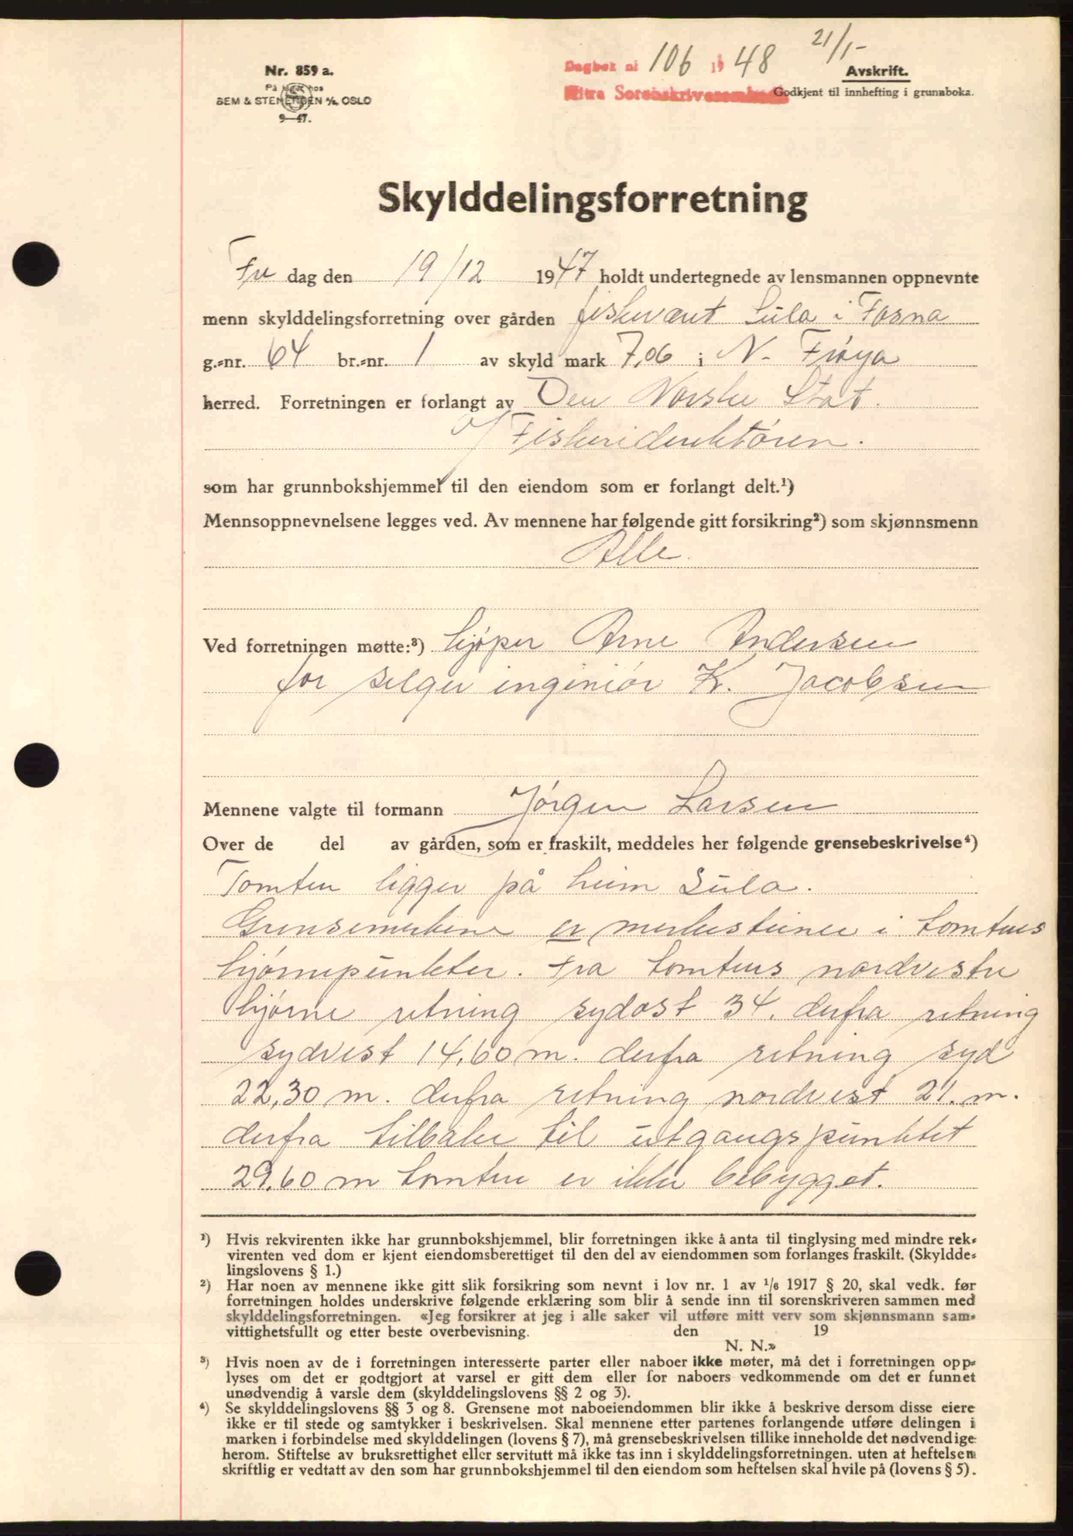 Nr. 859 a.
På lager hos
SEM & STENERSEN A/S, OSLO
9—47.
Dagbok nr 106 19 48
21/1-
Hitra Sorenskriverembede
Avskrift.
Godkjent til innhefting i grunnboka.
Skylddelingsforretning
Fre dag den 19/12 1947 holdt undertegnede av lensmannen oppnevnte
menn skylddelingsforretning over gården fiskeværet Sula i Fosna
g.=nr. 64 br.=nr. 1 av skyld mark 7,06 i N- Frøya
herred. Forretningen er forlangt av Den Norske Stat.
v/ Fiskeridirektøren.
som har grunnbokshjemmel til den eiendom som er forlangt delt.¹)
Mennsoppnevnelsene legges ved. Av mennene har følgende gitt forsikring²) som skjønnsmenn
Alle.
Ved forretningen møtte:³) kjøper Arne Andersen
for selger ingeniør K. Jacobsen
Mennene valgte til formann Jørgen Larsen
Over de del av gården, som er fraskilt, meddeles her følgende grensebeskrivelse⁴)
Tomten ligger på heim Sula.
Grensemerkene er merkesteiner i tomtens
hjørnepunkter. Fra tomtens nordvestre
hjørne retning sydost 34. derfra retning
sydvest 14,60 m. derfra retning syd
22,30 m. derfra retning nordvest 21. m.
derfra tilbake til utgangspunktet
29,60 m tomten er ikke bebygget.
¹) Hvis rekvirenten ikke har grunnbokshjemmel, blir forretningen ikke å anta til tinglysing med mindre rek=
virenten ved dom er kjent eiendomsberettiget til den del av eiendommen som forlanges fraskilt. (Skyldde=
lingslovens § 1.)
²) Har noen av mennene ikke gitt slik forsikring som nevnt i lov nr. 1 av 1/6 1917 § 20, skal vedk. før
forretningen holdes underskrive følgende erklæring som blir å sende inn til sorenskriveren sammen med
skylddelingsforretningen. «Jeg forsikrer at jeg i alle saker vil utføre mitt verv som skjønnsmann sam=
vittighetsfullt og etter beste overbevisning. den 19
N. N.»
³) Hvis noen av de i forretningen interesserte parter eller naboer ikke møter, må det i forretningen opp=
lyses om det er godtgjort at varsel er gitt dem eller for naboers vedkommende om det er funnet
unødvendig å varsle dem (skylddelingslovens §§ 2 og 3).
⁴) Se skylddelingslovens §§ 3 og 8. Grensene mot naboeiendommen blir ikke å beskrive dersom disse eiere
ikke er til stede og samtykker i beskrivelsen. Skal mennene etter partenes forlangende utføre delingen i
marken i forbindelse med skylddelingen (lovens § 7), må grensebeskrivelsen tillike inneholde det nødvendige
herom. Stiftelse av bruksrettighet eller servitutt må ikke tas inn i skylddelingsforretningen. uten at heftelsen
skriftlig er vedtatt av den som har grunnbokshjemmel til den eiendom som heftelsen skal hvile på (lovens § 5).